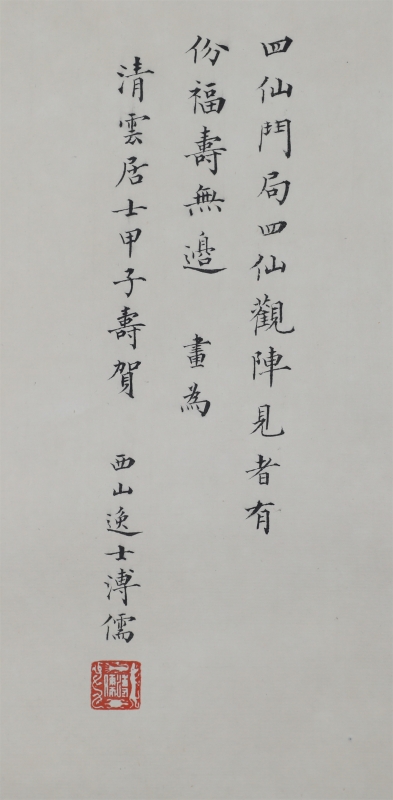 四仙鬥局四仙觀陣見者有
份福壽無邊　畫為
清雲居士甲子壽賀　西山逸士溥儒